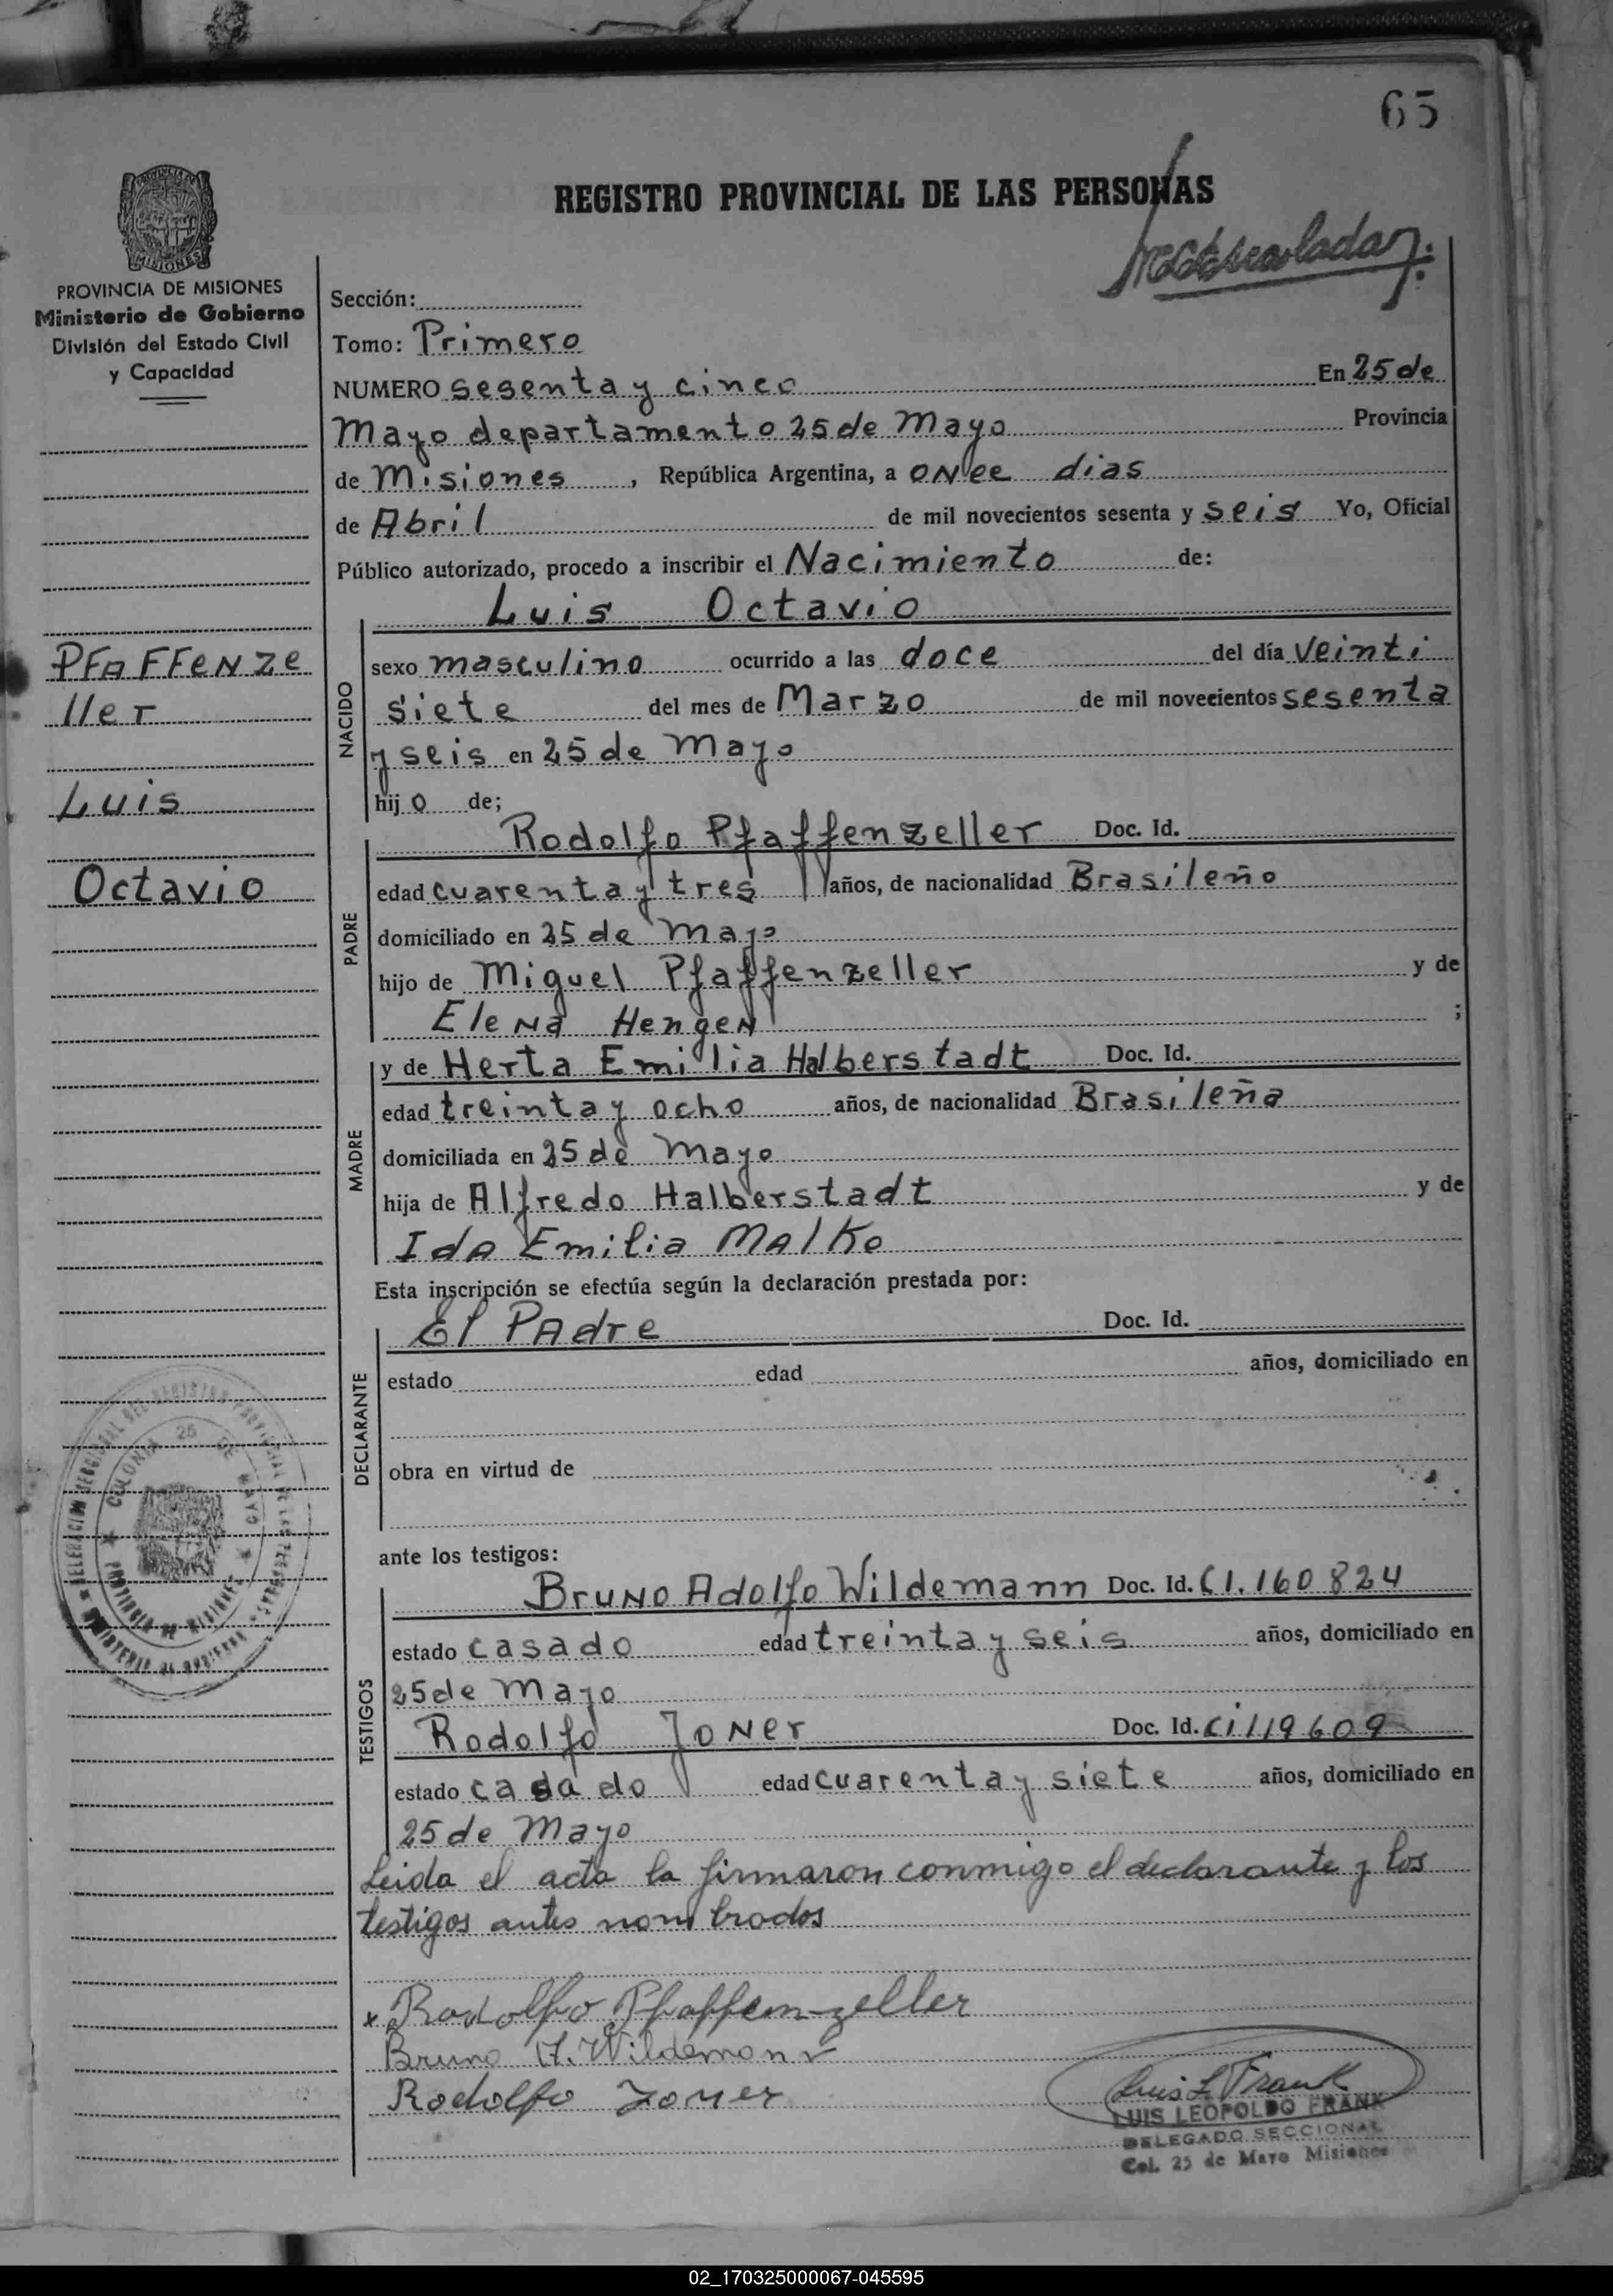 65
REGISTRO PROVINCIAL DE LAS PERSONAS
MISIONES
PROVINCIA DE MISIONES
Ministerio de Gobierno
División del Estado Civil
y Capacidad
PFAFFENZE
ller
Luis
Octavio
Sección:
Tomo: Primero
NUMERO sesenta y cinco En 25 de
Mayo departamento 25 de Mayo Provincia
de Misiones, República Argentina, a ONce dias
de Abril de mil novecientos sesenta y seis Yo, Oficial
Público autorizado, procedo a inscribir el Nacimiento de:
Luis Octavio
NACIDO
sexo masculino ocurrido a las doce del día veinti
siete del mes de Marzo de mil novecientos sesenta
y seis en 25 de Mayo
hijo de;
PADRE
Rodolfo Pfaffenzeller Doc. Id.
edad cuarenta y tres años, de nacionalidad Brasileño
domiciliado en 25 de Mayo
hijo de Miguel Pfaffenzeller y de
Elena Hengen ;
MADRE
y de Herta Emilia Halberstadt Doc. Id.
edad treinta y ocho años, de nacionalidad Brasileña
domiciliada en 25 de Mayo
hija de Alfredo Halberstadt y de
Ida Emilia Malko
Esta inscripción se efectúa según la declaración prestada por:
DECLARANTE
El Padre Doc. Id.
estado edad años, domiciliado en
obra en virtud de
COLONIA 25 DE MAYO
ante los testigos:
TESTIGOS
Bruno Adolfo Wildemann Doc. Id. CI. 160824
estado casado edad treinta y seis años, domiciliado en
25 de Mayo
Rodolfo Joner Doc. Id. Ci 119609
estado casado edad cuarenta y siete años, domiciliado en
25 de Mayo
Leida el acta la firmaron conmigo el declarante y los
testigos antes nombrados
x Rodolfo Pfaffemzeller
Bruno A. Wildemann
Rodolfo Joner
Luis L Frank
LUIS LEOPOLDO FRANK
DELEGADO SECCIONAL
Col. 25 de Mayo Misiones
02_170325000067-045595